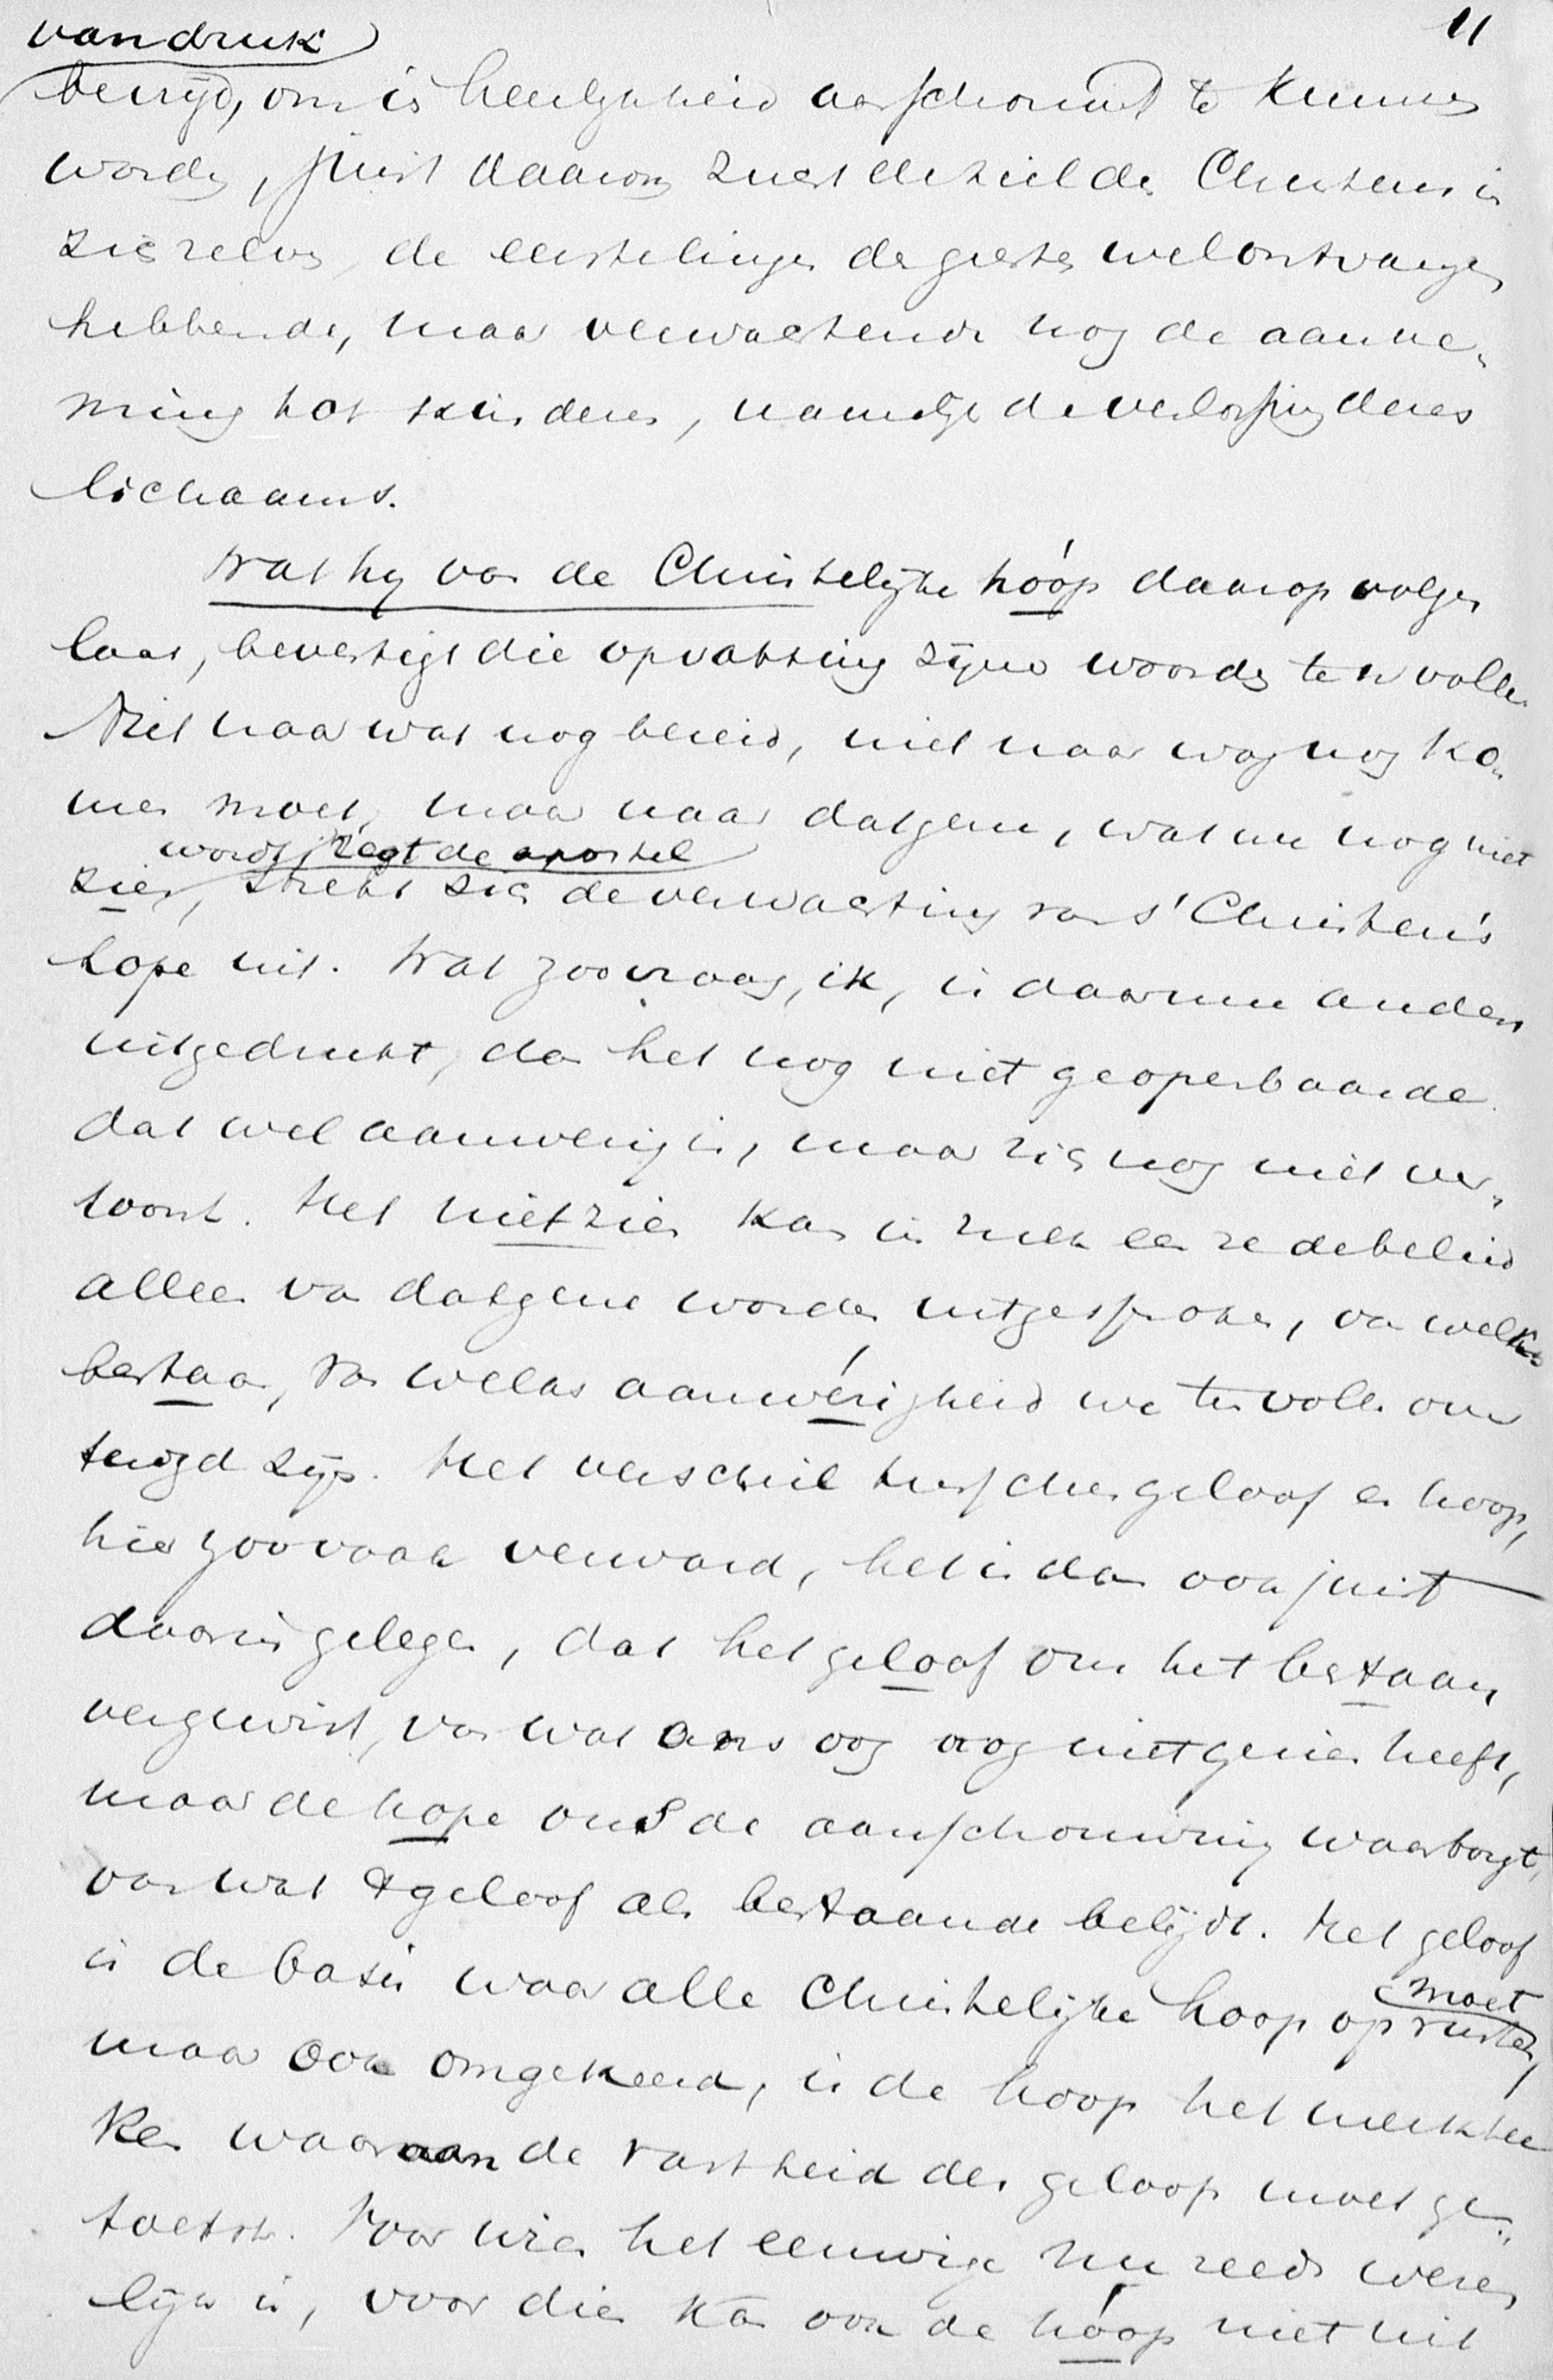 11
van druk
bevrijd, om in heerlijkheid aanschouwd te kunnen
worden, juist daarom zucht de ziel des Christens in
zich zelven, de eerstelingen des geestes wel ontvangen
hebbende, maar verwachtende nog de aanne-
ming tot kinderen, namelijk de verlossing deres
lichaams.
Wat hij van de Christelijke hóóp daarop volgen
laat, bevestigt die opvatting zijner woorden ten volle.
Niet naar wat nog bereid, niet naar wat nog ko-
men moet, maar naar datgene, wat nu nog niet
wordt, zegt de apostel
zien, strekt zich de verwachting van 's Christen's
hope uit. Wat zoo vraag, ik, is daarmee anders
uitgedrukt, dan het nog niet geopenbaarde
dat wel aanwezig is, maar zich nog niet ver-
toont. Het niet zien kan in zulk een redebeleid
alleen van datgene worden uitgesproken, van welks
bestaan, van welks aanwézigheid we ten volle over
tuigd zijn. Het verschil tusschen geloof en hoop,
hier zoo vaak verward, het is dan ook juist
daarin gelegen, dat het geloof ons het bestaan
vergewist, van wat ons oog nog niet gezien heeft,
maar de hope ons de aanschouwing waarborgt,
van wat 't geloof als bestaande belijdt. Het geloof
is de basis waar alle Christelijke hoop op rusten
moet
maar ook omgekeerd, is de hoop het merktee
ken waaraan de vastheid des geloofs moet ge-
toetst. Voor wien het eeuwige nu reeds wezen
lijk is, voor dien kan ook de hóóp niet uit